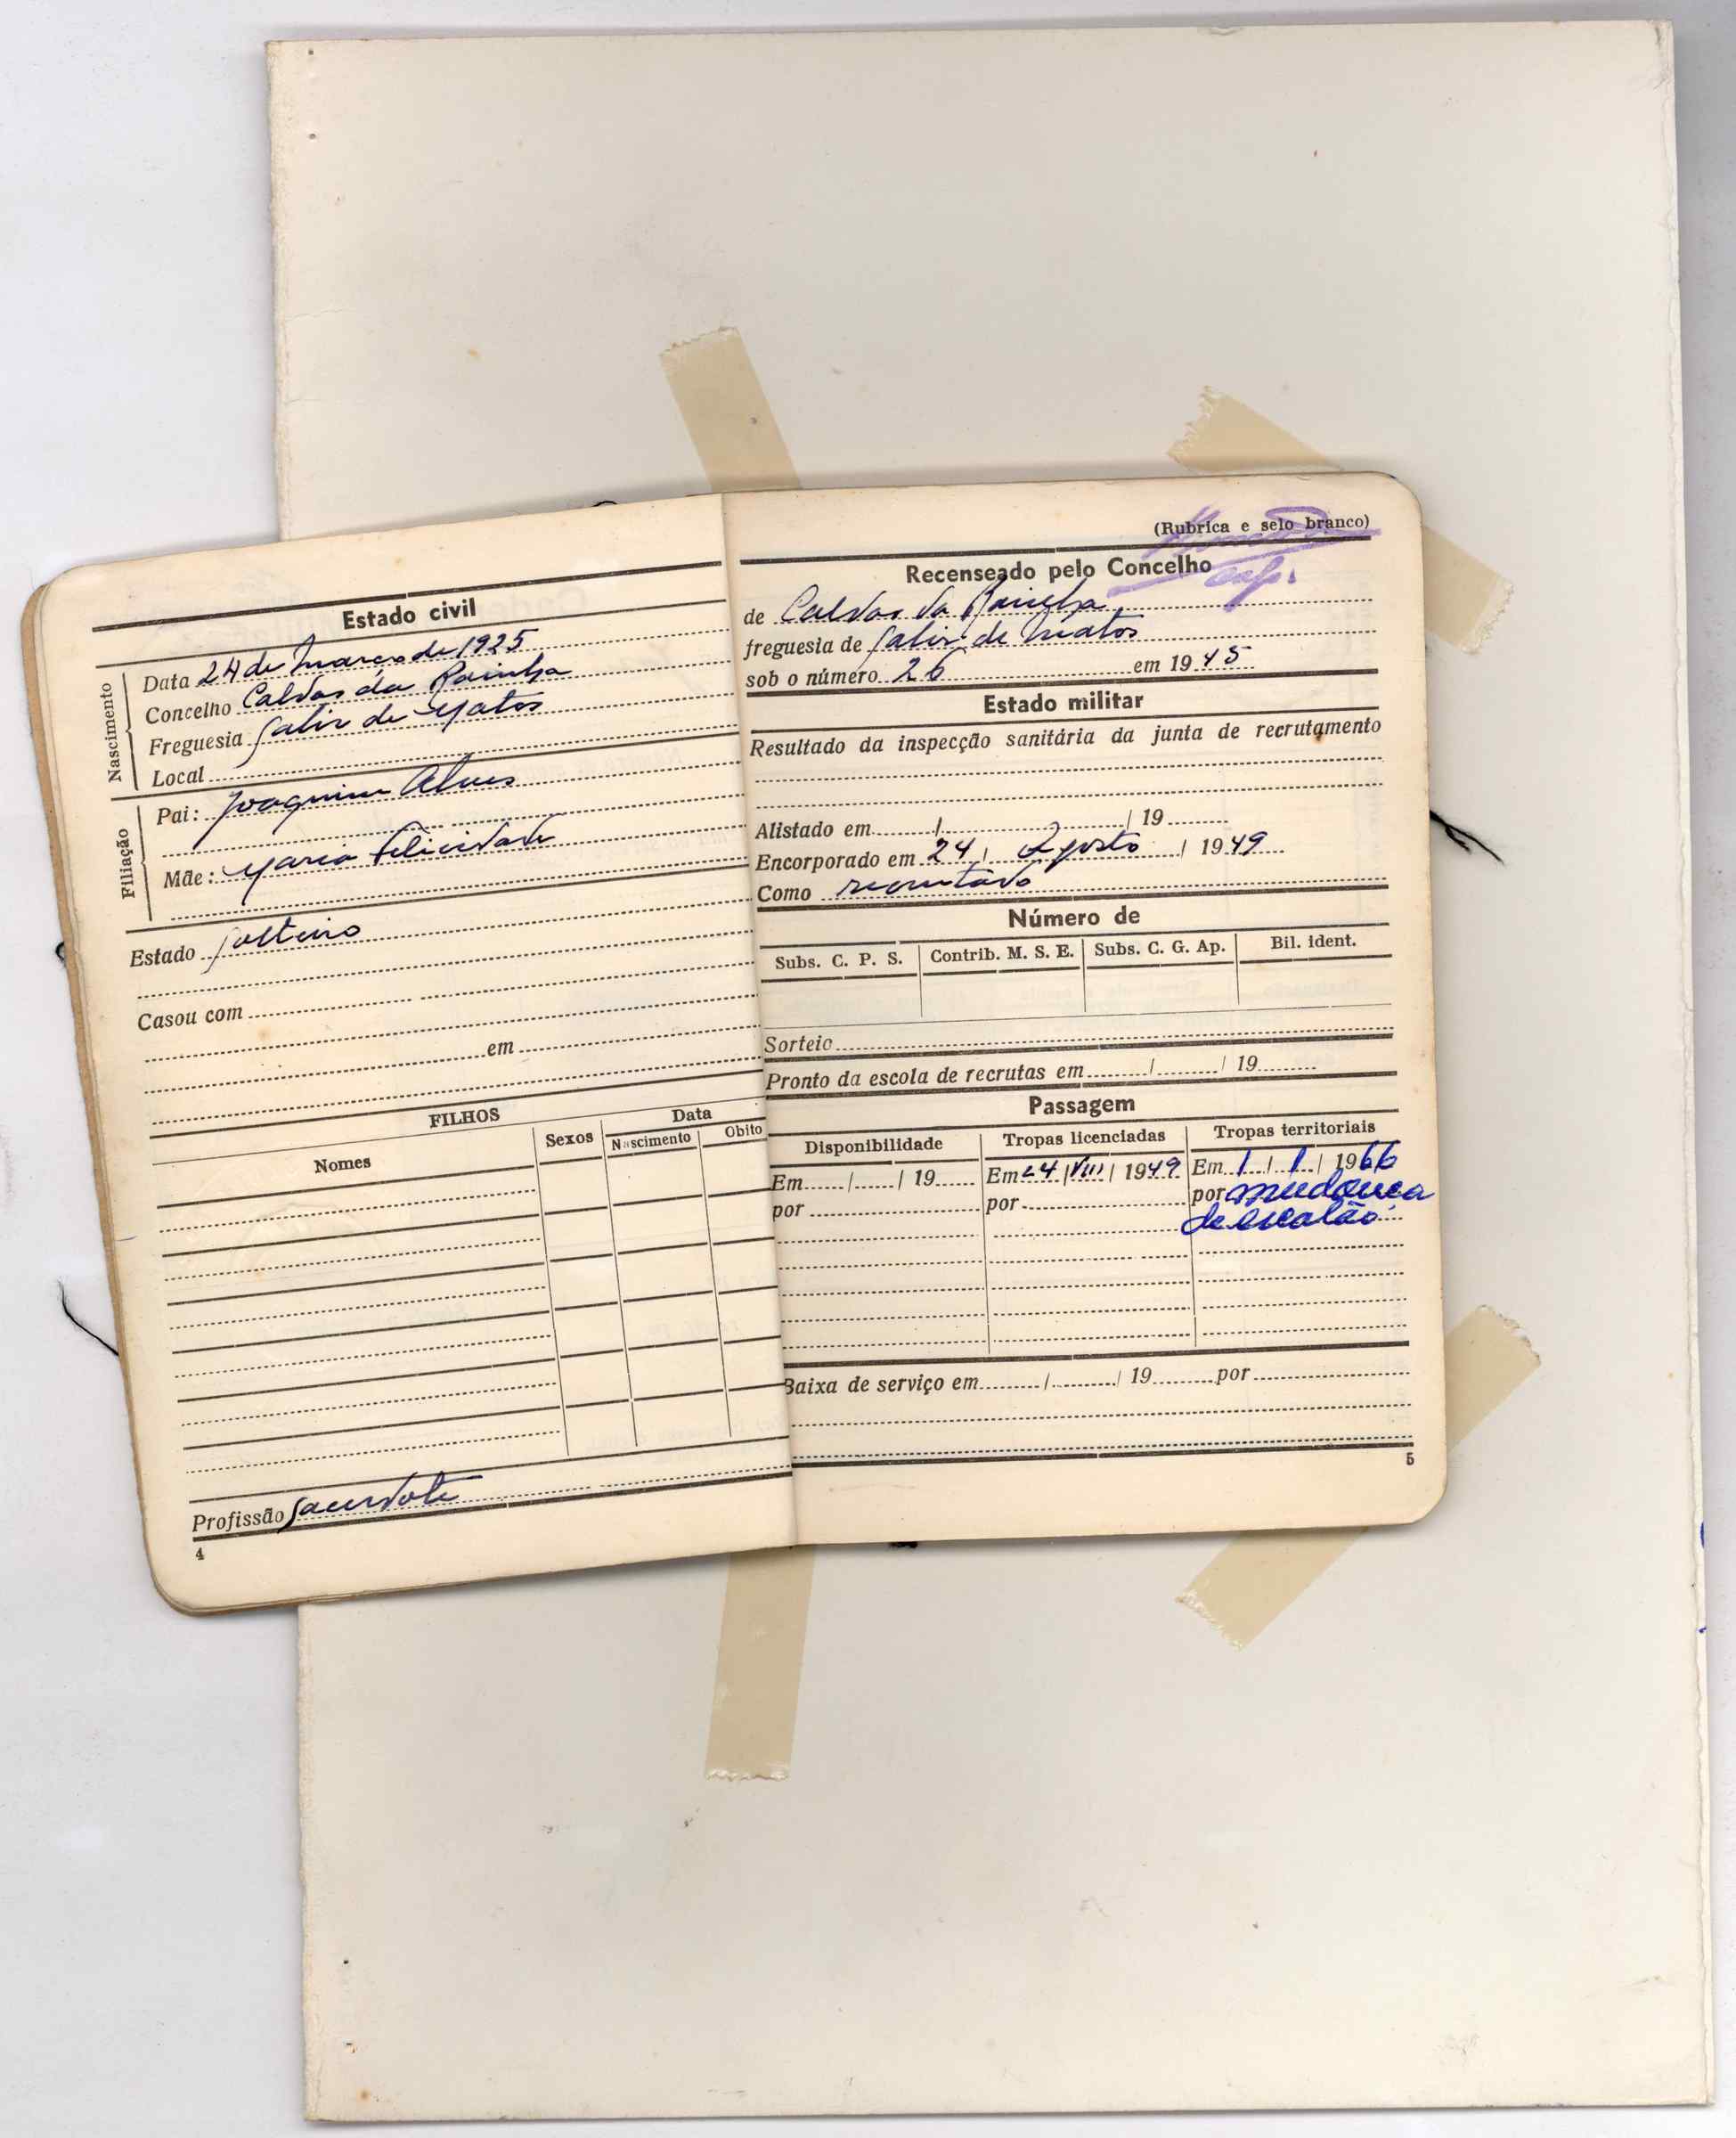 Estado civil
Nascimento
Data 24 de Março de 1925
Concelho Caldas da Rainha
Freguesia Salir de Matos
Local
Filiação
Pai: Joaquim Alves
Mãe: Maria Felicidade
Estado Solteiro
Casou com
em
FILHOS
Nomes
Sexos
Data
Nascimento
Obito
Profissão Sacerdote
4
(Rubrica e selo branco)
Recenseado pelo Concelho
de Caldas da Rainha
freguesia de Salir de Matos
sob o número 26 em 1945
Estado militar
Resultado da inspecção sanitária da junta de recrutamento
Alistado em / / 19
Encorporado em 24 / Agosto / 1949
Como recrutado
Número de
Subs. C. P. S. Contrib. M. S. E. Subs. C. G. Ap. Bil. ident.
Sorteio
Pronto da escola de recrutas em / / 19
Passagem
Disponibilidade
Em / / 19
por
Tropas licenciadas
Em 24 / VIII / 1949
por
Tropas territoriais
Em 1 / 1 / 1966
por mudança
de escalão
Baixa de serviço em / / 19 por
5